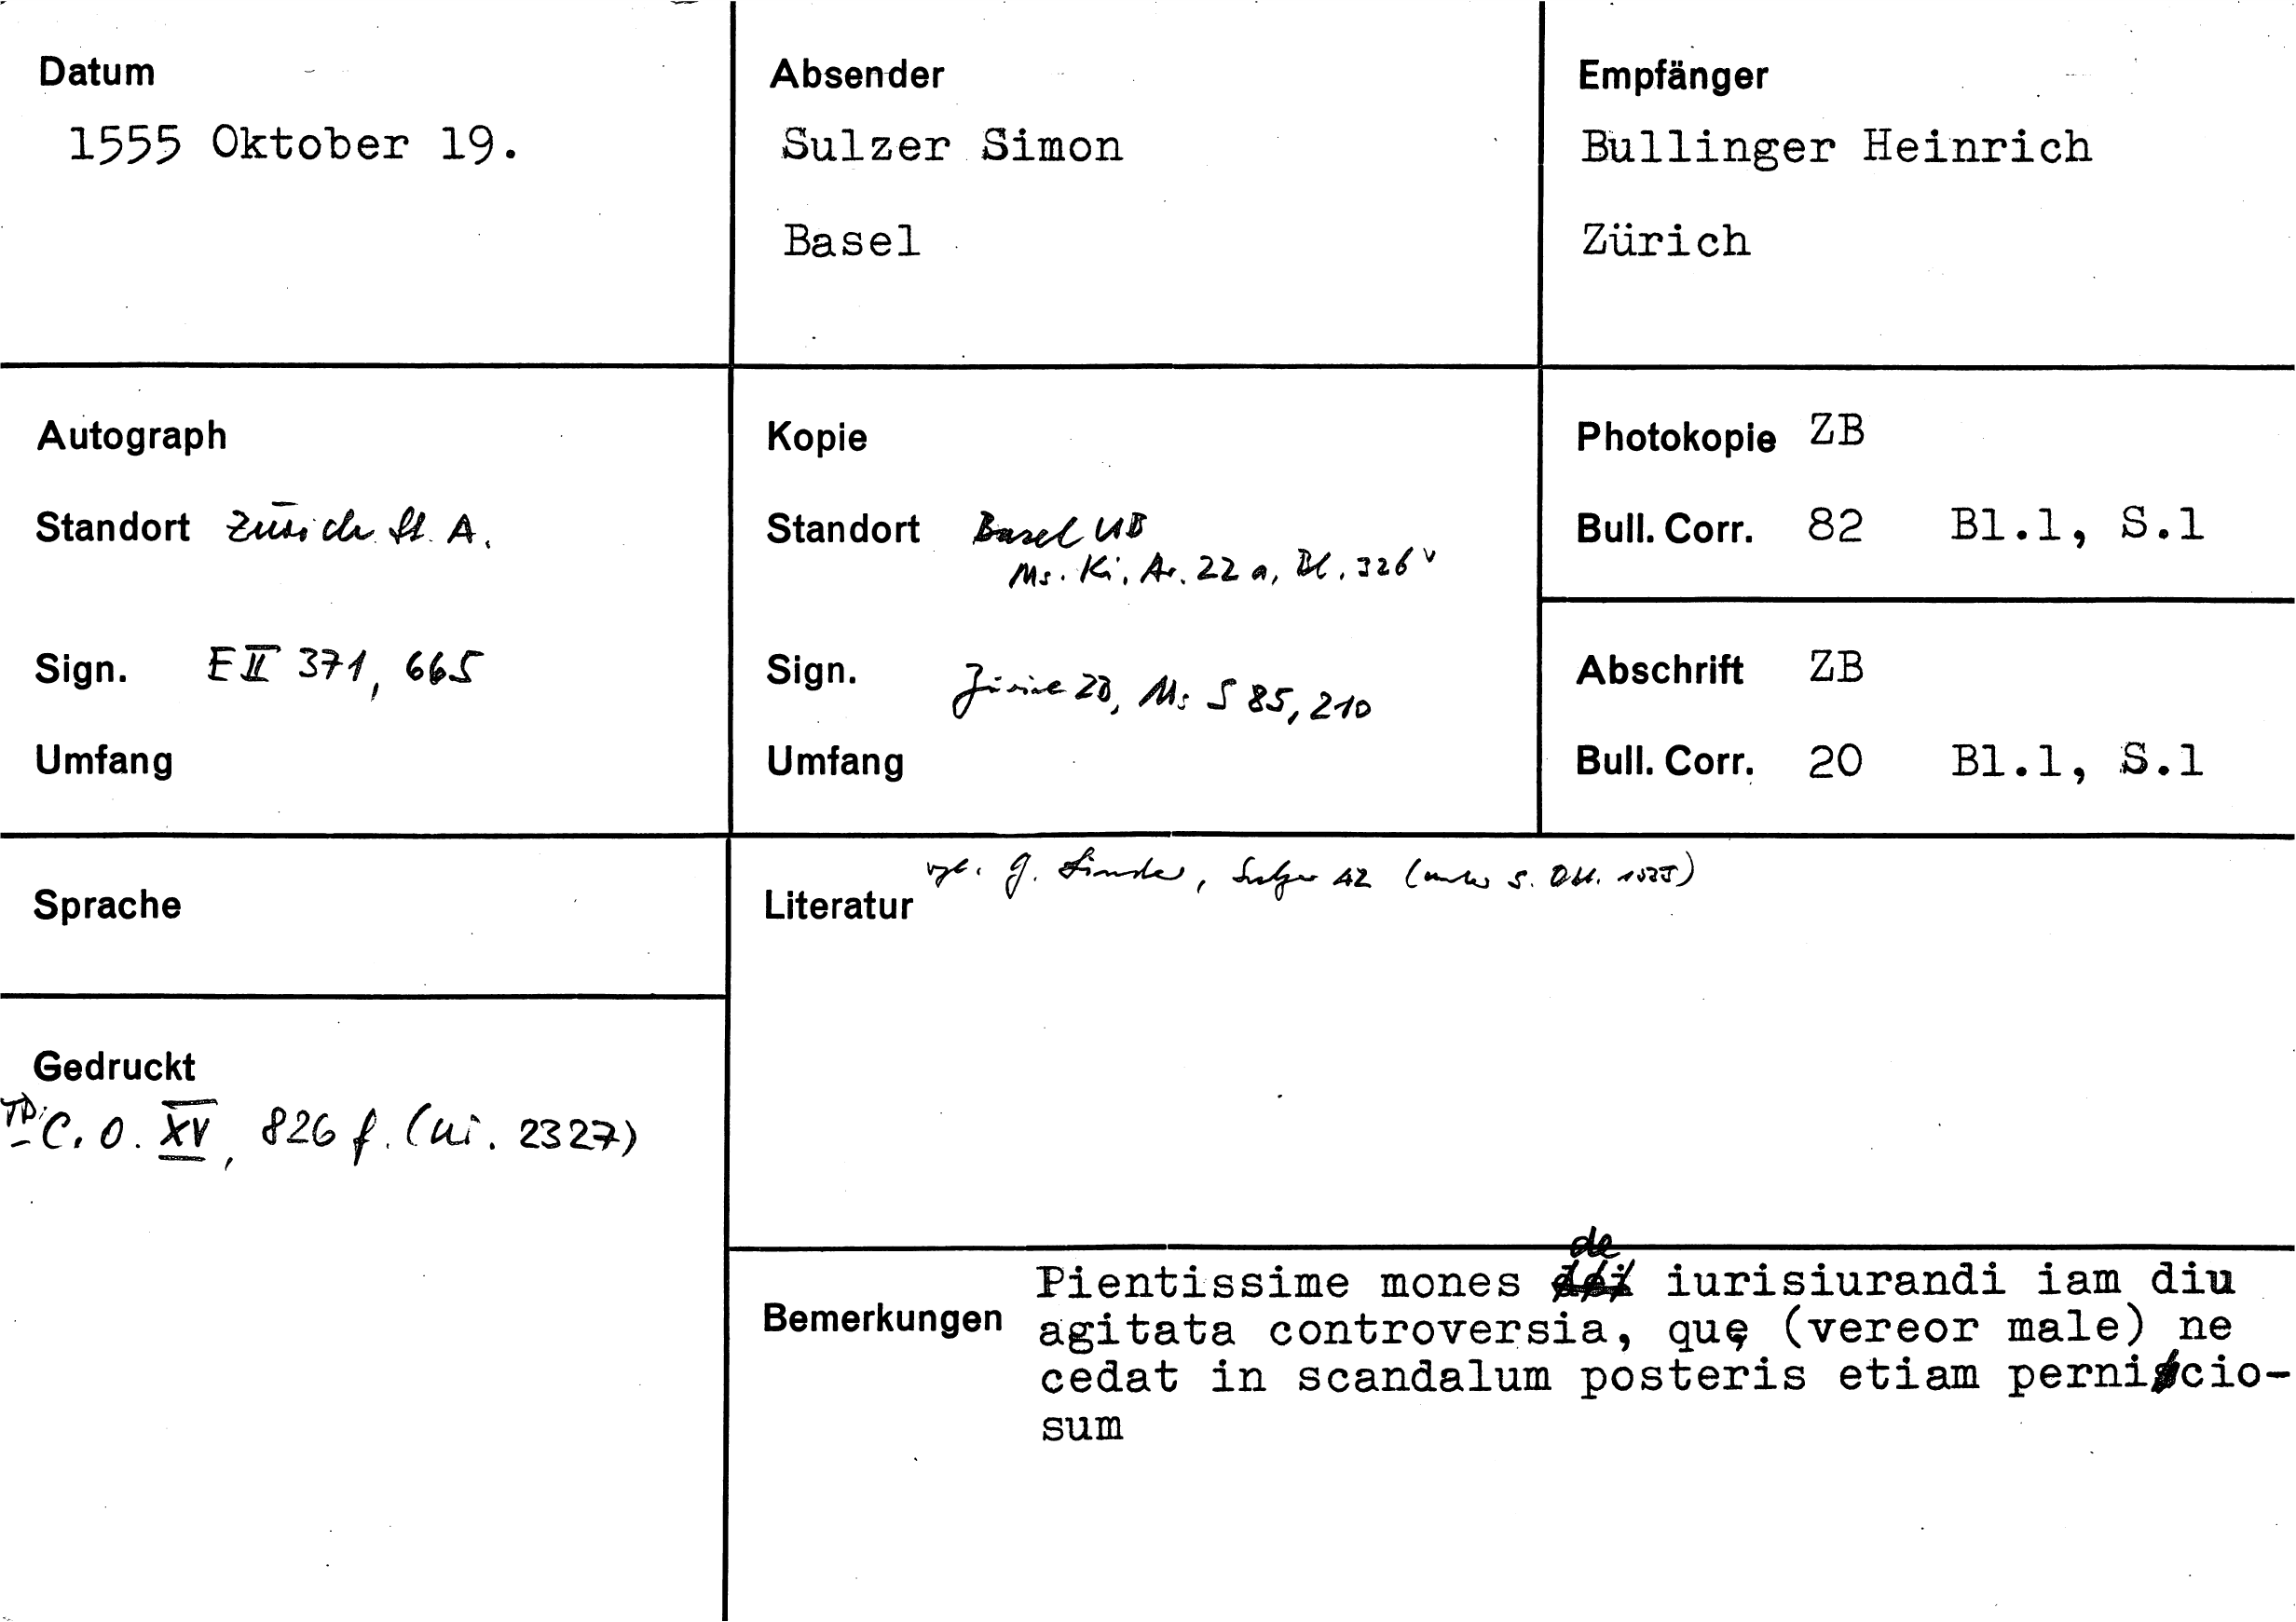 Datum
1555 Oktober 19.
Absender
Sulzer Simon
Basel
Empfänger
Bullinger Heinrich
Zürich
Autograph
Standort Zürich St. A.
Sign. E II 371, 665
Umfang
Kopie
Standort Basel UB
Ms. Ki. Ar. 22a, Bl. 326v
Sign. Zürich ZB, Ms S 85, 210
Umfang
Photokopie ZB
Bull. Corr. 82 Bl.1, S.1
Abschrift ZB
Bull. Corr. 20 Bl.1, S.1
Sprache
Literatur vgl. G. Linder, Sulzer 42 (unter 5. Okt. 1555)
Gedruckt
TD: C. O. XV, 826 f. (Nr. 2327)
Bemerkungen
Pientissime mones de iurisiurandi iam diu
agitata controversia, quę (vereor male) ne
cedat in scandalum posteris etiam pernicio-
sum